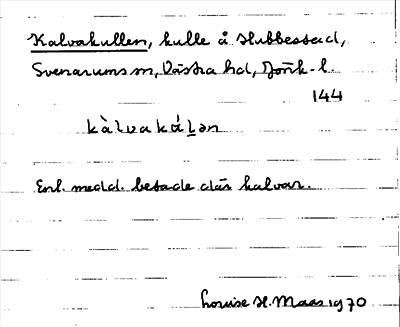 Kalvakullen, kulle å Hubbestad,
Svenarums sn, Västra hd, Jönk. l.
144
kàlvakáḷən
Enl. medd. betade där kalvar.
Louise H. Maas 1970